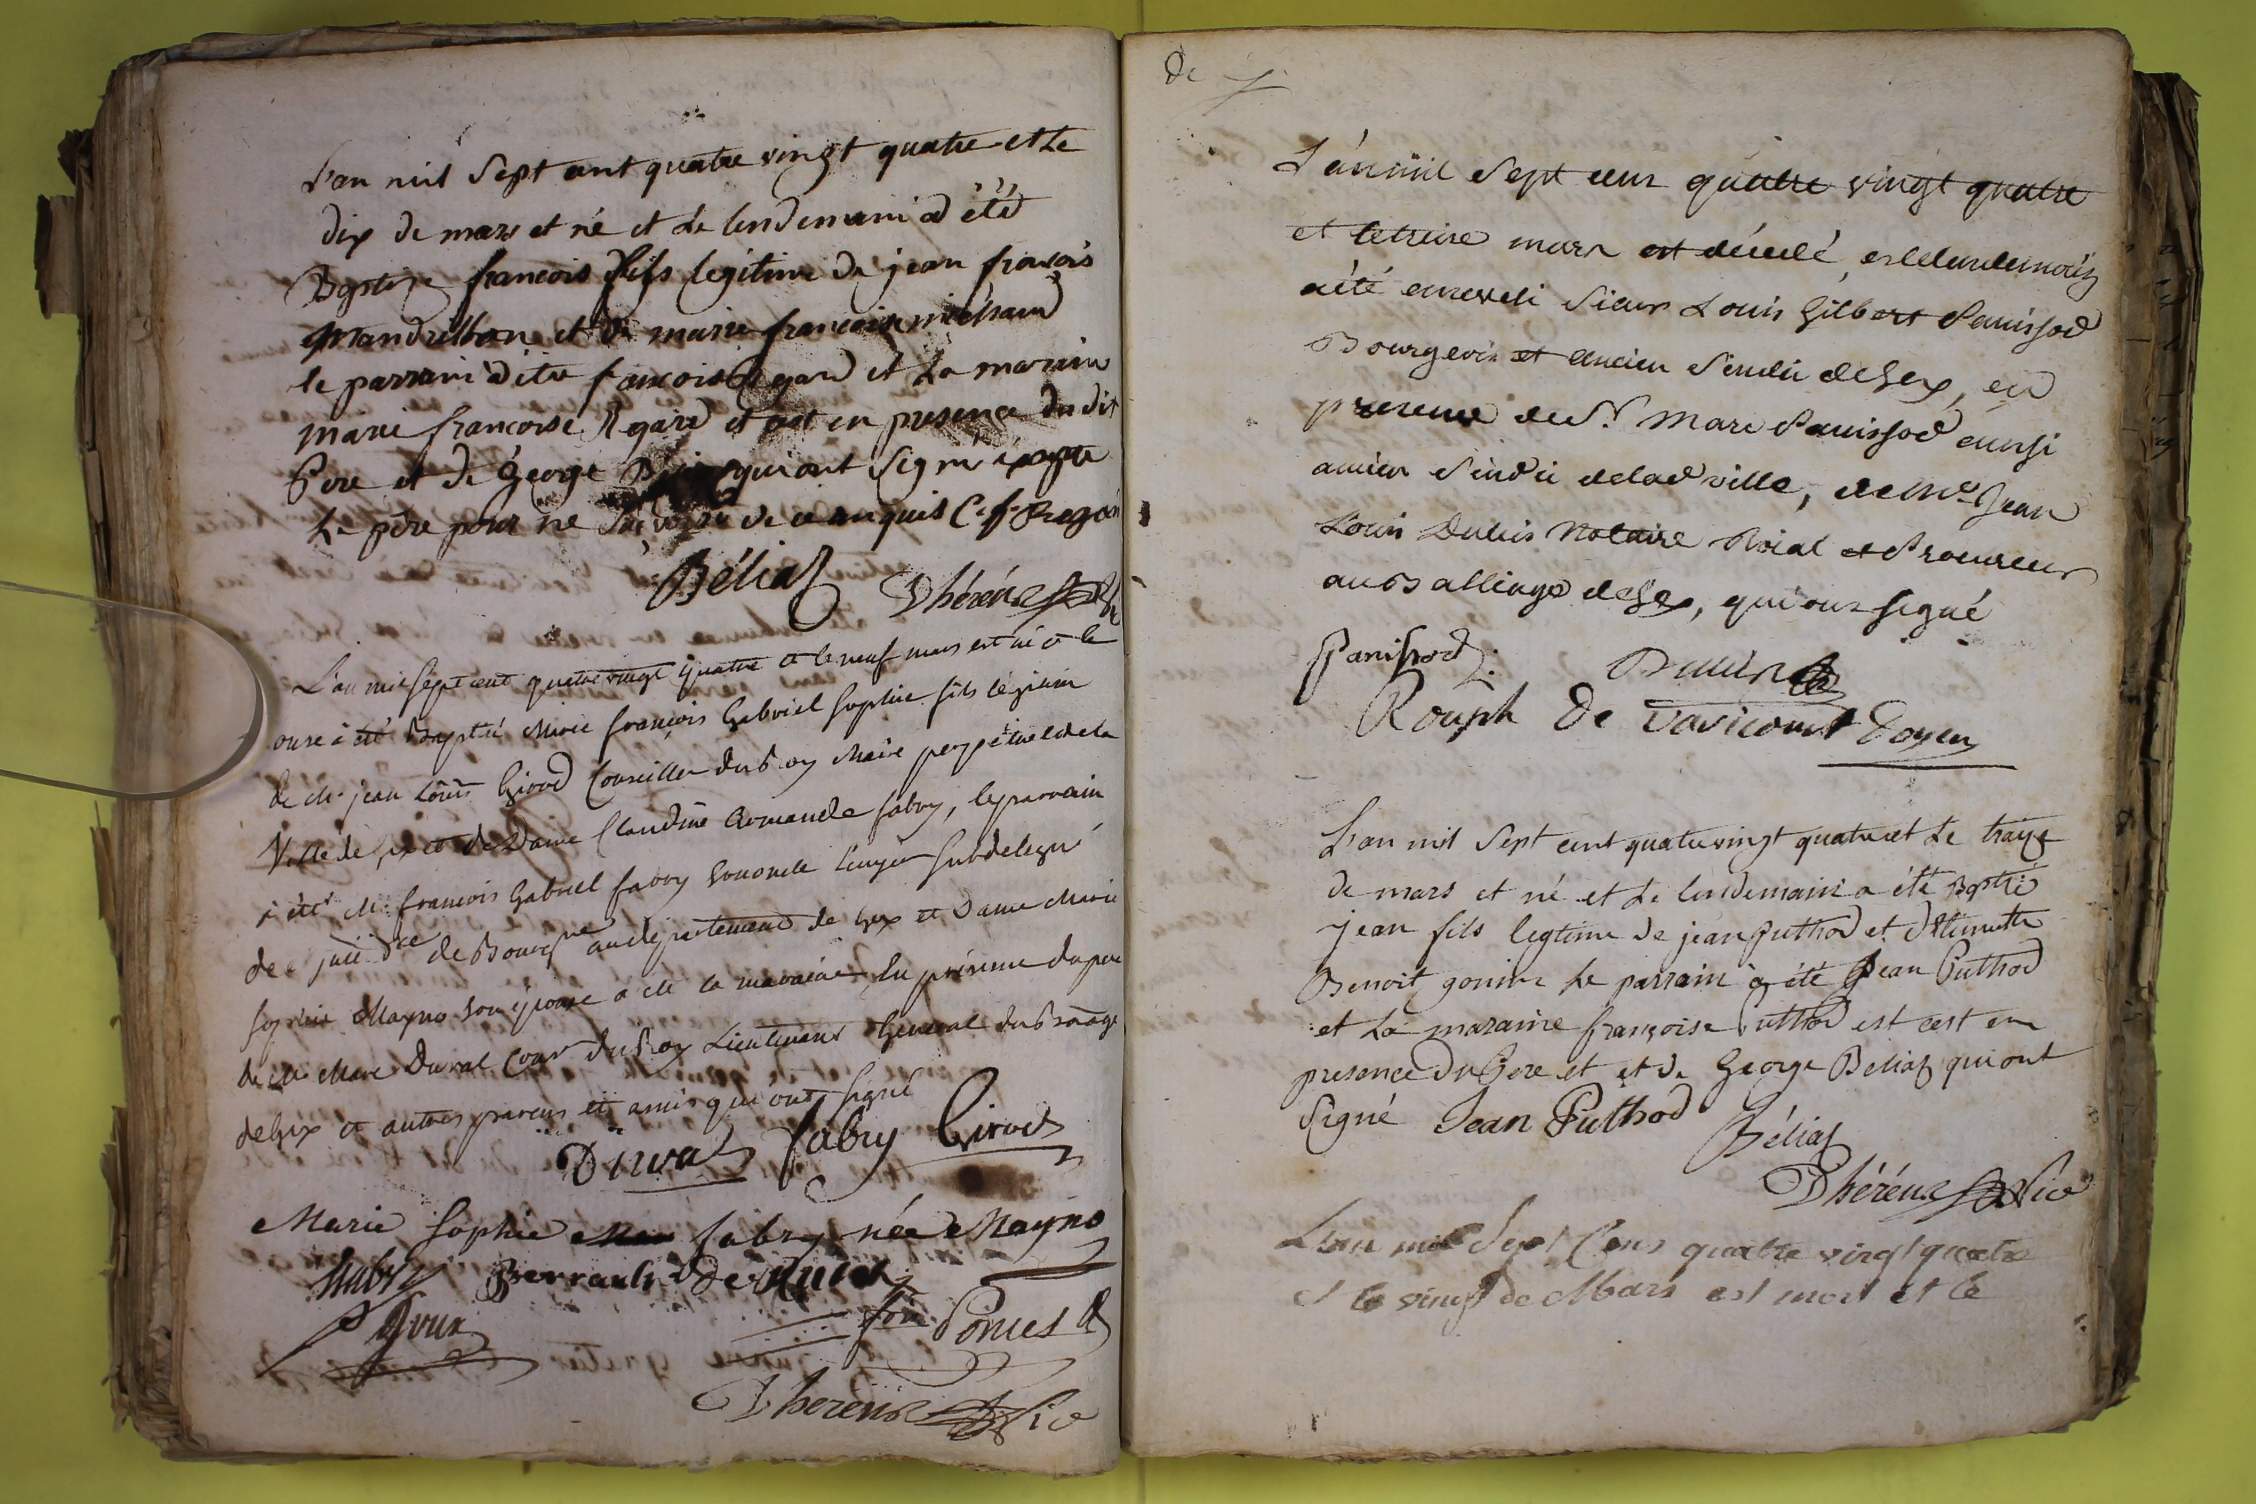 L'an mil Sept cent quatre vingt quatre et Le
dix de mars et né et Le lendemain a été
Baptise francois fils legitime de jean francois
Mandrilhon et de marie francoise michaud
le parrain a été francois Regard et La maraine
marie francoise Regard et cest en presence du dit
Pere et de George qui ont signé excepte
Le père pour ne de ce enquis C. f. Regard
Béliaz Dhérens
L'an mil sept cent quatre vingt quatre et le neuf mars est né et le
onze a été baptisé Marie françois Gabriel Sophie fils légitime
de Mr jean Louis Girod Conseiller du Roy Maire perpétuel de la
Ville de Gex et de Dame Claudine Armande fabry, le parrain
a été Mr francois Gabriel fabry Ecuyer Subdelegué
de de Bourgne au département de Gex et Dame Marie
Sophie Mayno son épouse a été la maraine En présence du pere
de Mr Marc Duval Coner du Roy Lieutenant General du Bailage
de Gex et autres parens et amis qui ont signé
Duval fabry Girod
Marie Sophie fabry née Mayno
fabry Perrault de
Dherens Vic
de
L'an mil Sept cent quatre vingt quatre
et le treize mars est décedé, et le lendemain
a été enseveli Sieur Louis Gilbert Panissod
Bourgeois et ancien Sindic de Gex, en
presence de Sr. Marc Panissod aussi
ancien Sindic de lad ville, de Me Jean
Louis Dulcis Notaire Roial et Procureur
au Balliage de Gex, qui ont signé
Panissod. Dulcis
Rouph de Varicourt Doyen
L'an mil Sept cent quatre vingt quatre et Le traize
de mars et né et Le lendemain a été Bptisé
jean fils legtime de jean Puthod et d'Etiennette
Benoit gonin Le parrain a été Jean Puthod
et La maraine françoise Puthod est cest en
presence du Pere et et de George Beliaz qui ont
Signé Jean Puthod
Béliaz
Dhérens Vic
L'an mil Sept Cens quatre vingt quatre
et le vingt de Mars est mort et le